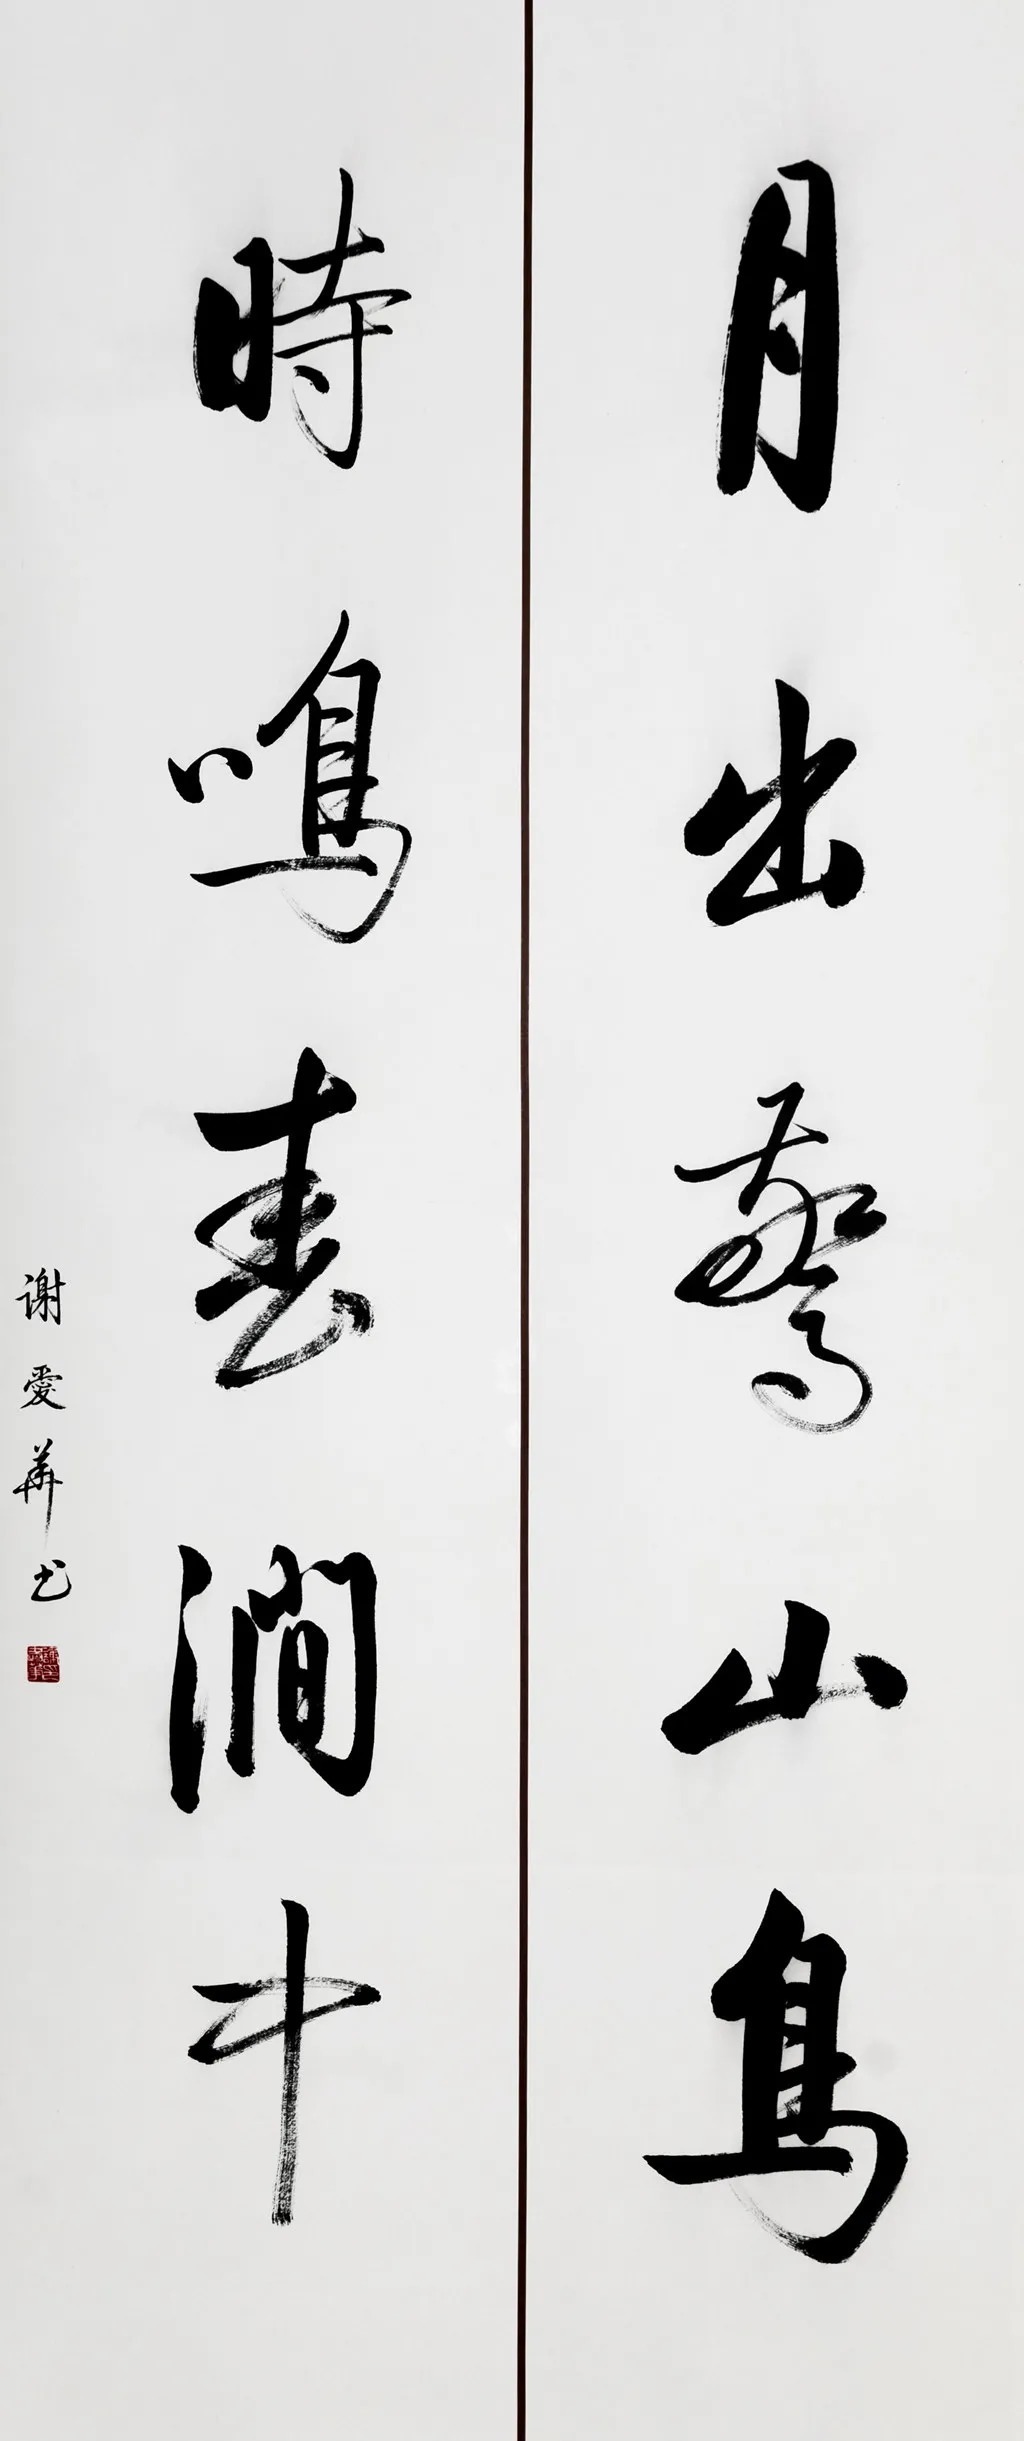 月出驚山鳥
時鳴春澗中
谢愛華书